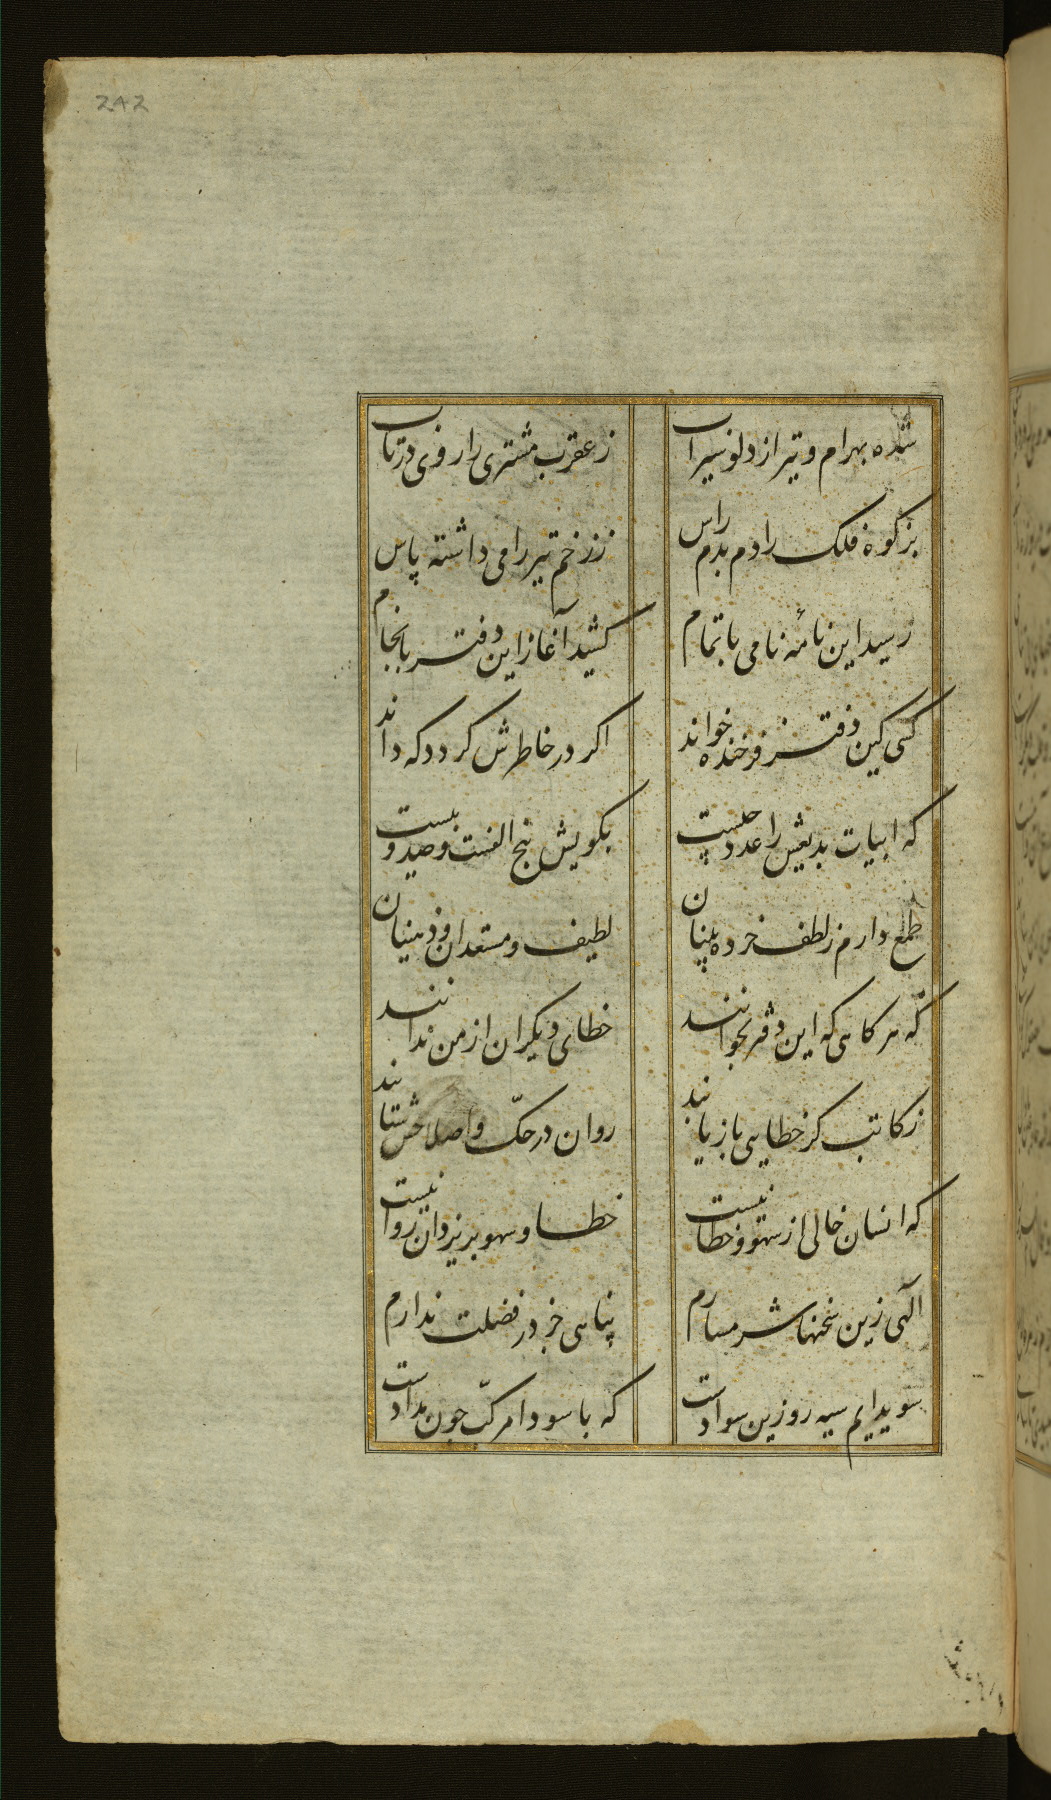 242
شده بهرام و تیر از دلو سیراب
ز عقرب مشتری را روی در تاب
بز کوه فلک را دم بدم راس
ز زخم تیر را می داشته پاس
رسید این نامهٔ نامی باتمام
کشید آغاز این دفتر بانجام
کسی کین دفتر فرخنده خواند
اکر در خاطرش کردد که داند
که ابیات بدیعش را عدد چیست
بکویش پنج الفست و صد و بیست
طمع دارم ز لطف خرده بینان
لطیف و مستعدان و ذهینان
که هر کاهی که این دفتر بخوانند
خطای دیکران از من ندانند
ز کاتب کر خطایی باز یابند
روان در حکّ و اصلاحش شتابند
که انسان خالی از سهو و خطا نیست
خطا و سهو بر یزدان روا نیست
الهی زین سخنها شرمسارم
پناهی جز در فضلت ندارم
سویدایم سیه روزین سوادست
که با سودا مرکّب چون مدادست